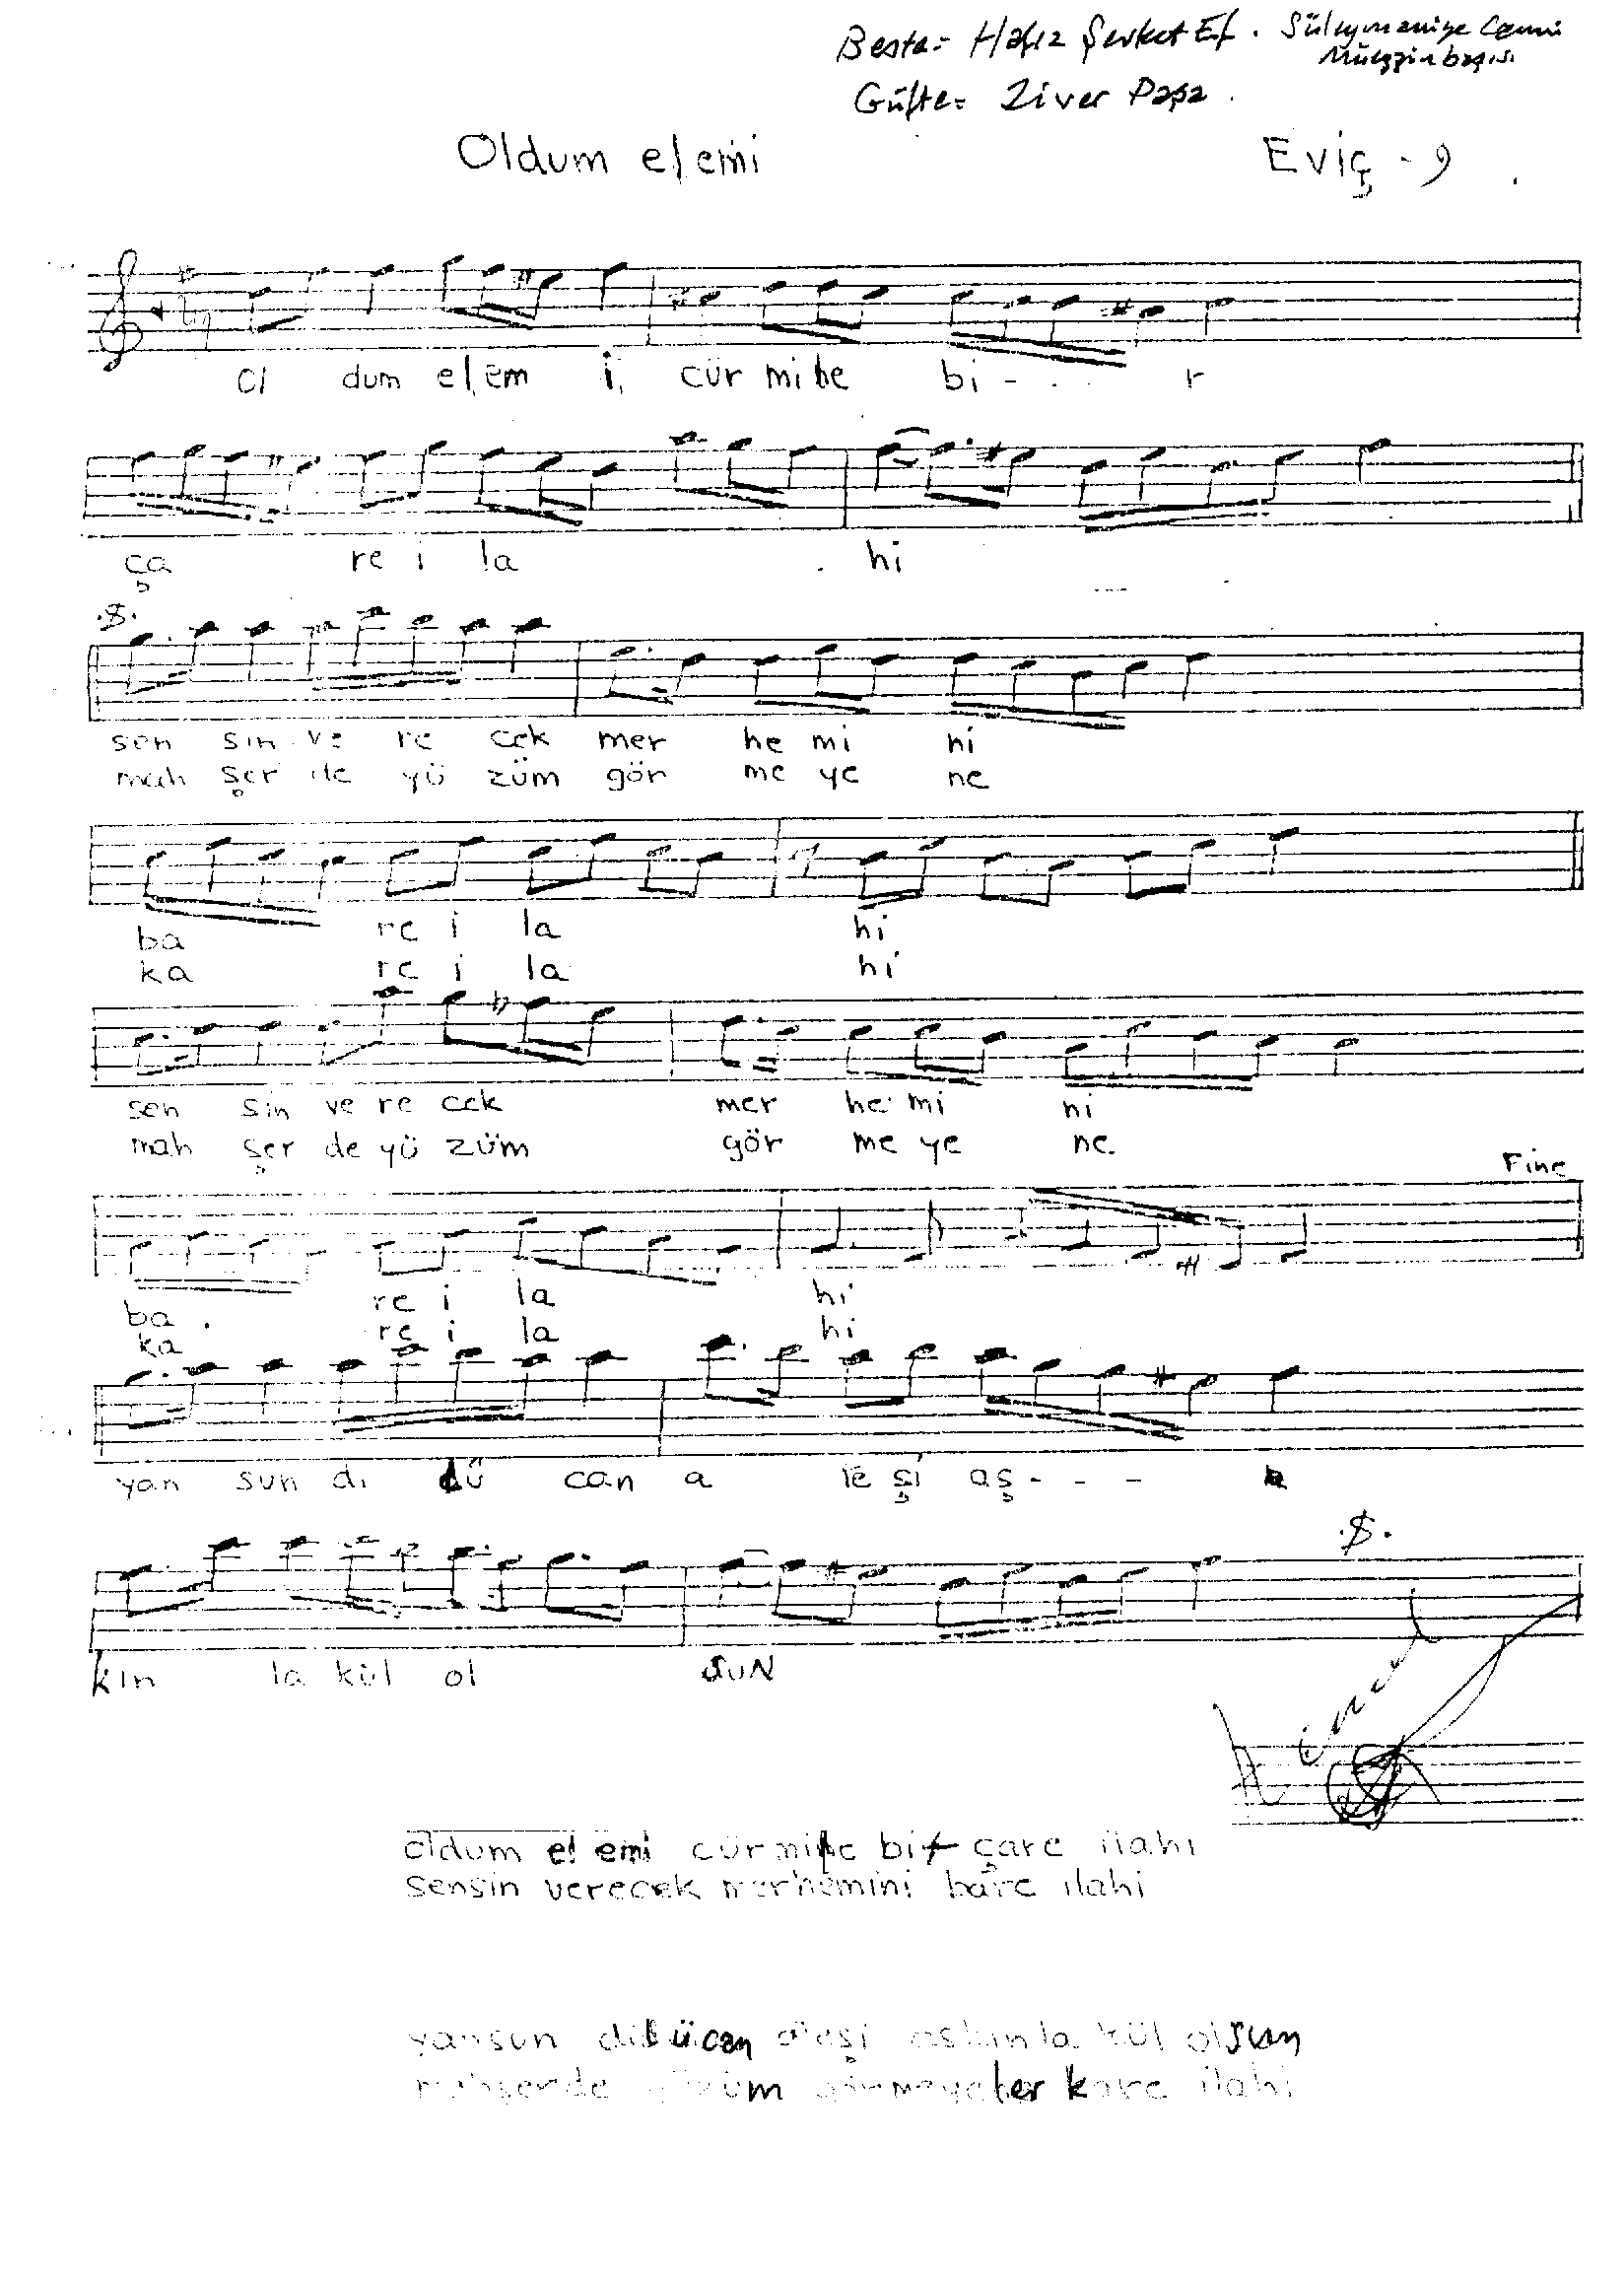 Beste= Hafız Şevket Ef. Süleymaniye Camii
Müezzinbaşısı
Güfte= Ziver Paşa.
Oldum elemi Eviç - 9
Ol dum el em i, cür mi he bi - . . r
ça re i la hi
sen sin ve re cek mer he mi ni
mah şer de yü züm gör me ye ne
ba re i la hi
ka re i la hi
sen sin ve re cek mer he mi ni
mah şer de yü züm gör me ye ne
Fine
ba . re i la hi
ka re i la hi
yan sun di lü can a te şi aş - - -
kın la kül ol sun
oldum el emi cürmihe bir çare ilahi
sensin verecek merhemini bare ilahi
yansun dilücan ateşi aşkınla kül olsun
mahşerde yüzüm görmeyeler kare ilahi